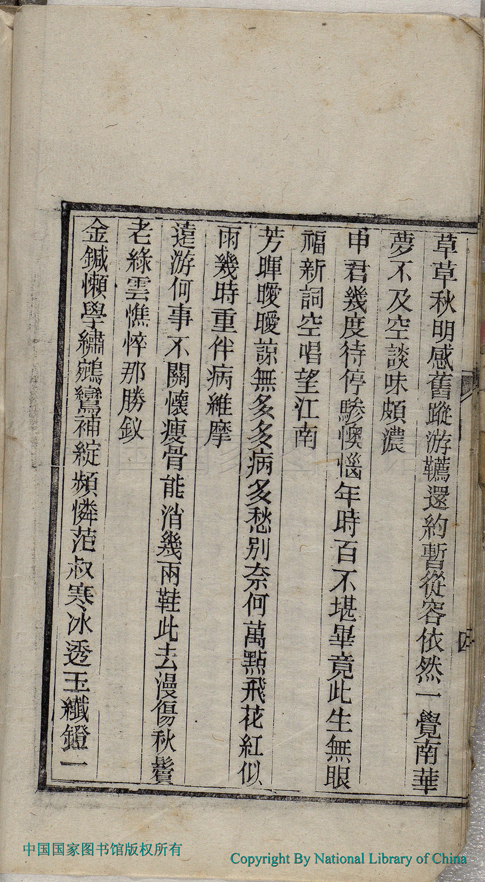 草草秋明感舊蹤游驄還約暫從容依然一覺南華
夢不及空談味頗濃
申君幾度待停驂懊惱年時百不堪畢竟此生無眼
福新詞空唱望江南
芳暉曖曖諒無多多病多愁別奈何萬點飛花紅似
雨幾時重伴病維摩
遠游何事不關懷瘦骨能消幾兩鞋此去漫傷秋鬢
老綠雲憔悴那勝釵
金鍼懶學繡鴛鴦補綻頻憐范叔寒冰透玉纖鐙一
中国国家图书馆版权所有
Copyright By National Library of China